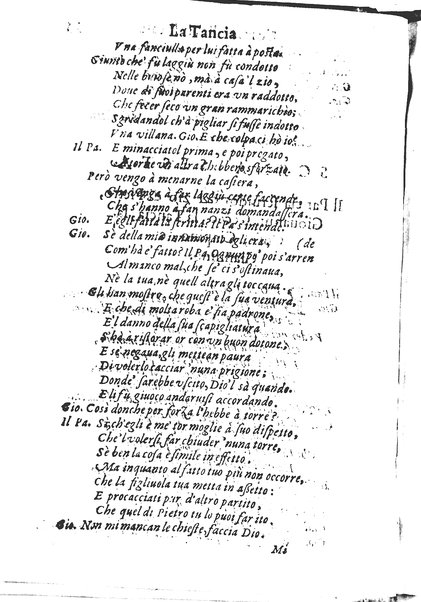 La Tancia
Vna fanciulla per lui fatta à posta.
Giunto che fù laggiù non fù condotto
Nelle buiose nò, mà à casa'l zio,
Doue di suoi parenti era vn raddotto,
Che fecer seco vn gran rammarichio;
Sgridandol ch'à pigliar si fusse indotto
Vna villana. Gio. E che colpa ci hò io?
Il Pa. E minacciatol prima, e poi pregato,
Però vengo à menarne la casiera,
Che s'hanno à far nanzi domandassera.
Gio. E gli fatta la scritta? Il Pa. s'intende.
Gio. Sè della mia innamorato egli era, (de
Com'hà e fatto? Il Pa. Ognun pò poi s'arren
Al manco mal, che se ci s'ostinaua,
Nè la tua, nè quell'altra gli toccaua.
Gli han mostro, che quest'è la sua ventura,
E che di molta roba e' fia padrone,
E'l danno della sua scapigliatura
S'hà à ristorar or con vn buon dotone.
E se negaua, gli mettean paura
Di volerlo cacciar 'nuna prigione;
Donde sarebbe vscito, Dio'l sà quando.
E li fù giuoco andaruisi accordando.
Gio. Così donche per forza l'hebbe à torre?
Il Pa. Sì, ch'egli è me' tor moglie à suo dispetto,
Che'l volersi far chiuder 'nuna torre,
Sè ben la cosa è simile in effetto.
Ma inquanto al fatto tuo più non occorre,
Che la figliuola tua metta in assetto:
E procacciati pur d'altro partito,
Che quel di Pietro tu lo puoi far ito.
Gio. Non mi mancan le chieste, faccia Dio.
Mi